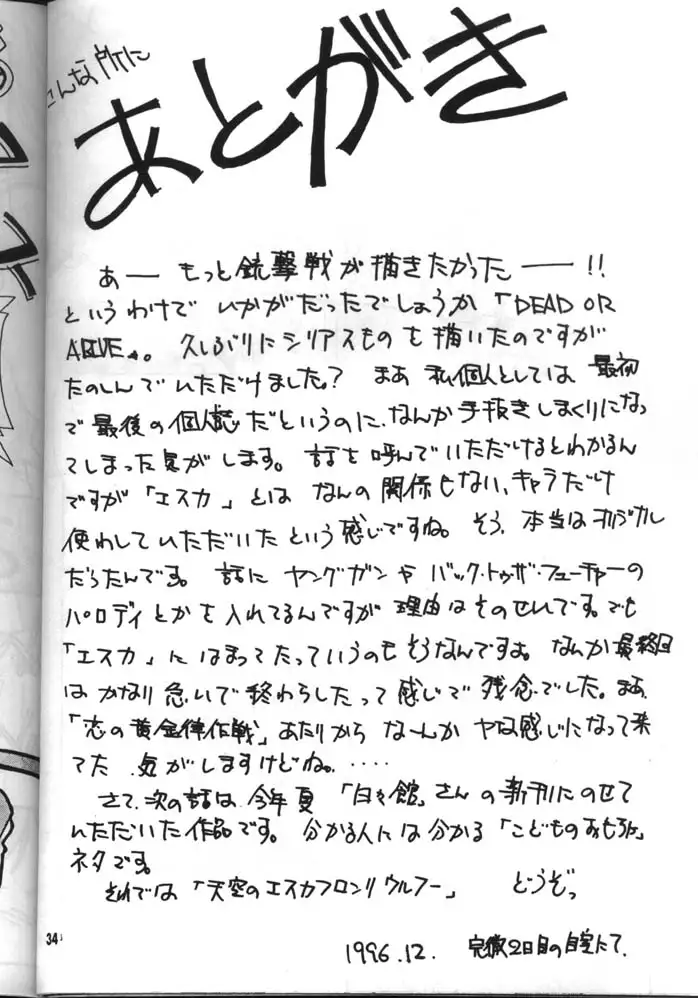 こんな所に
あとがき
あー もっと銃撃戦が描きたかったー!!
というわけで いかがだったでしょうか「DEAD OR
ALIVE」。 久しぶりにシリアスものを描いたのですが
たのしんでいただけました? まあ 私個人としては 最初
で最後の個人誌だというのに、なんか手抜きしまくりになっ
てしまった気がします。 話を呼んでいただけるとわかるん
ですが「エスカ」とは なんの関係もない、キャラだけ
使わしていただいたという感じですね。 そう、本当はオリジナル
だったんです。 話に ヤングガンや バック・トゥ・ザ・フューチャーの
パロディとかを入れてるんですが 理由はそのせいです。でも
「エスカ」にはまってたっていうのもそうなんですよ。なんか最終回
はかなり急いで終わらしたって感じで残念でした。まあ
「恋の黄金律作戦」あたりから なーんか ヤな感じになって来
てた 気がしますけどね。・・・・
さて、次の話は、今年夏「白々館」さんの新刊にのせて
いただいた作品です。 分かる人には分かる「こどものおもちゃ」
ネタです。
それでは「天空のエスカフロンリウルフー」 どうぞっ
34
1996.12. 完徹2日目の自室にて、